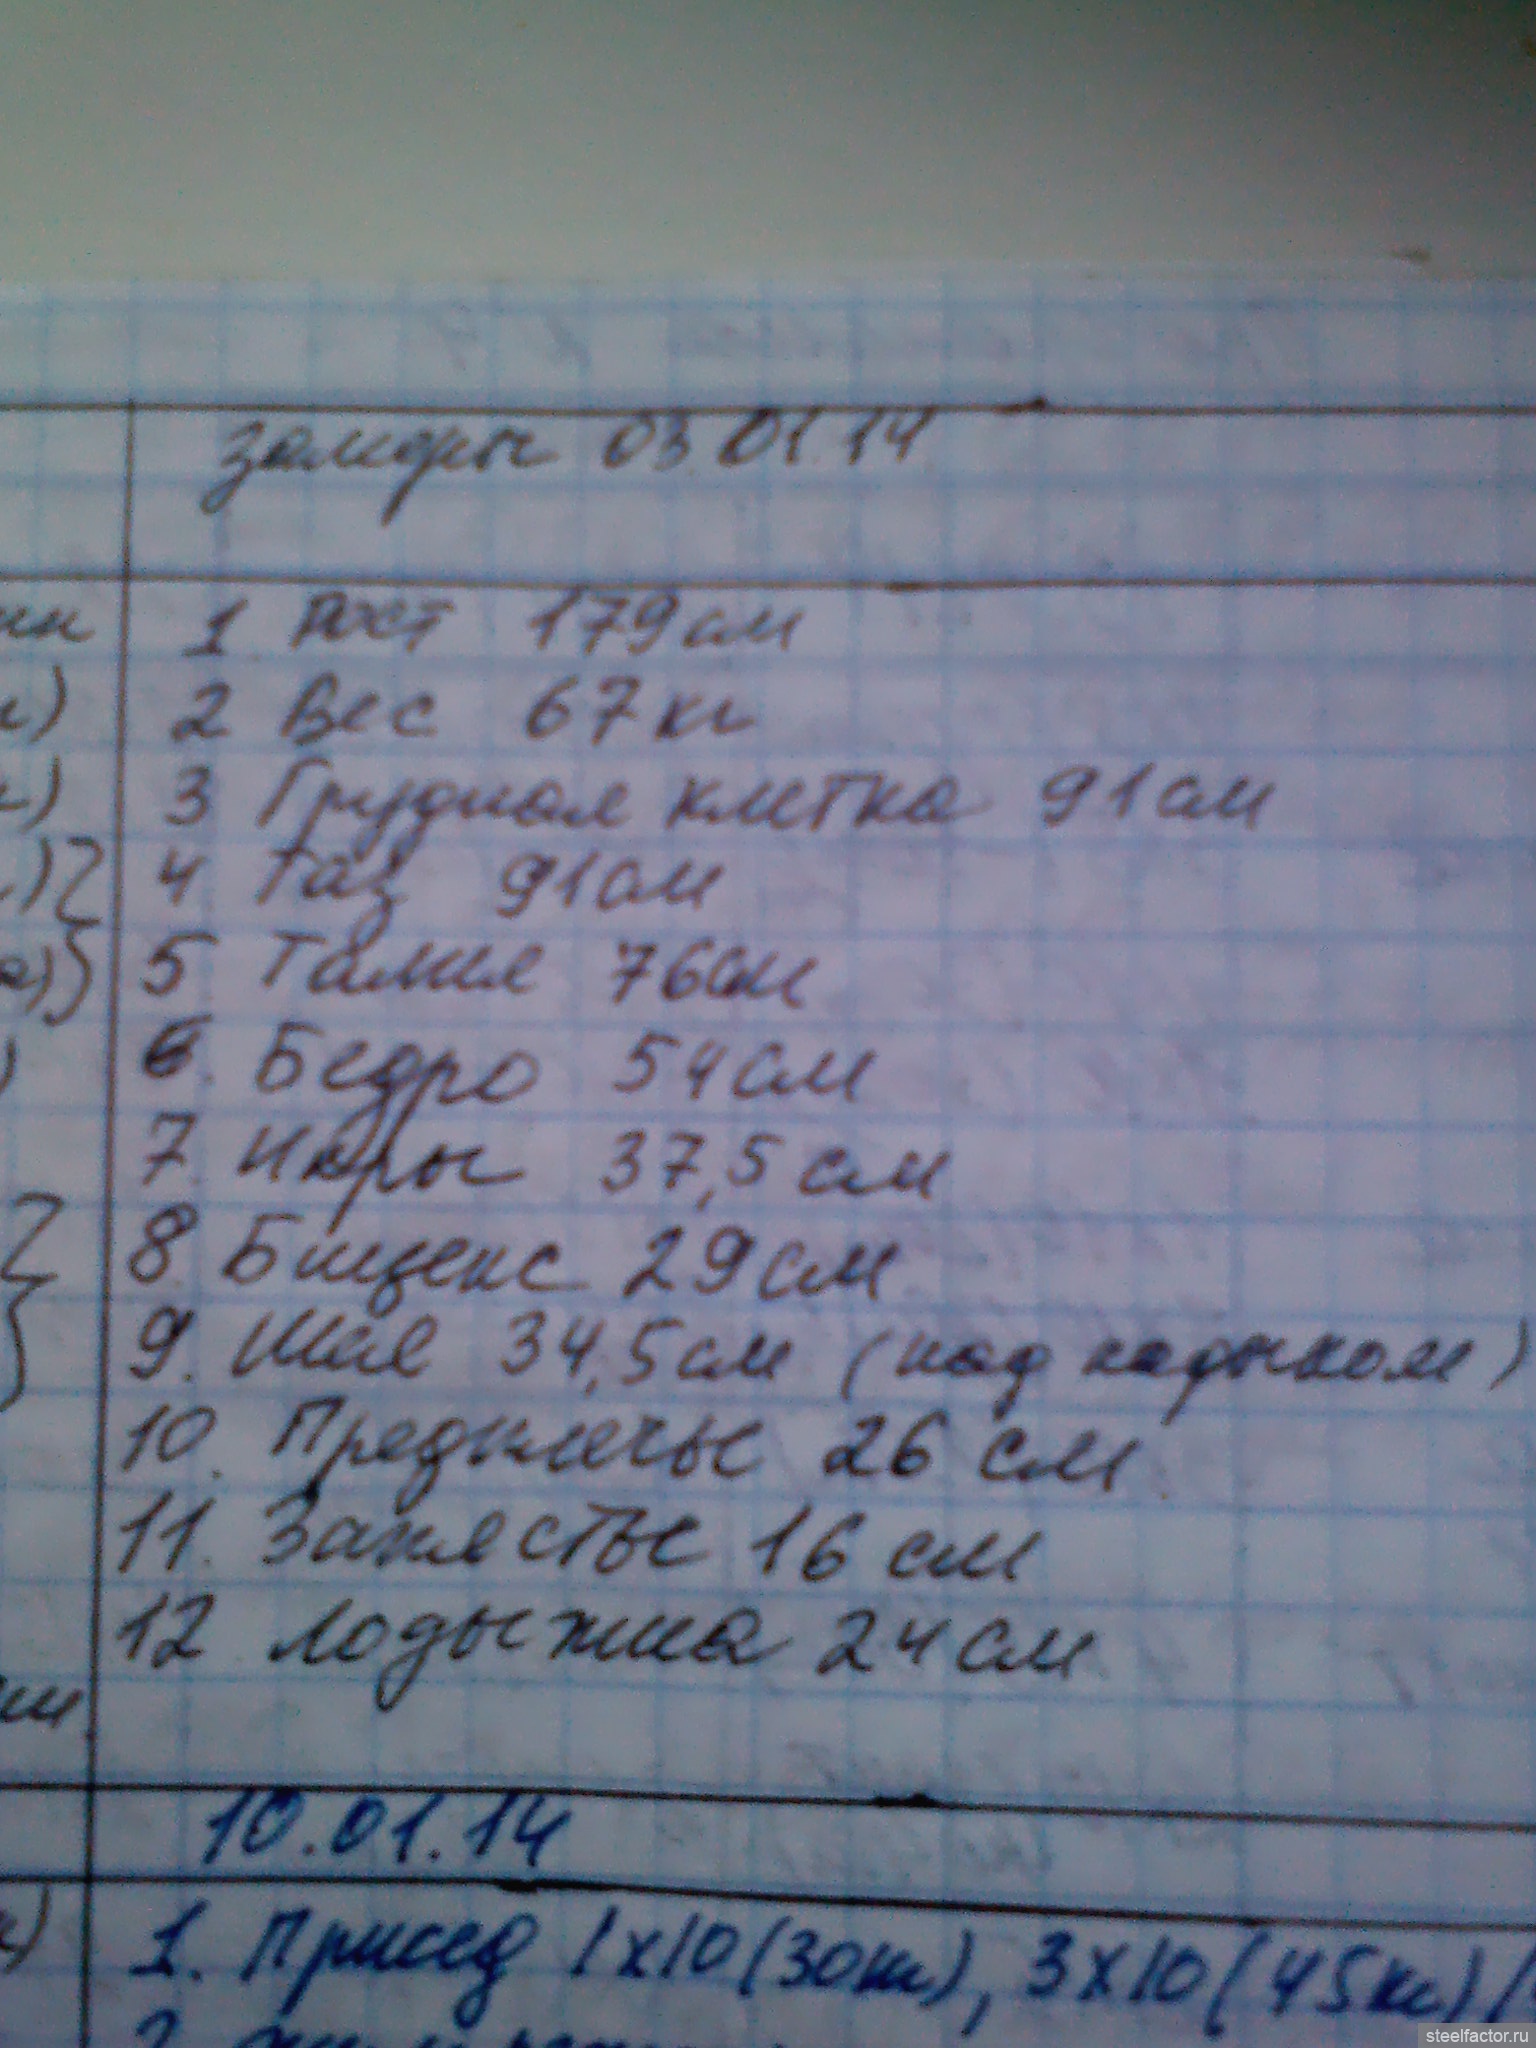 замеры 03 01 14
1 Рост 179 см
2 Вес 67 кг
3 Грудная клетка 91 см
4 Таз 91 см
5 Талия 76 см
6. Бедро 54 см
7 Икры 37,5 см
8 Бицепс 29 см
9. Шея 34,5 см (над кадыком)
10. Предплечье 26 см
11. Запястье 16 см
12 лодыжка 24 см
10.01.14
1. Присед 1х10 (30кг), 3х10 (45кг)
2.
steelfactor.ru